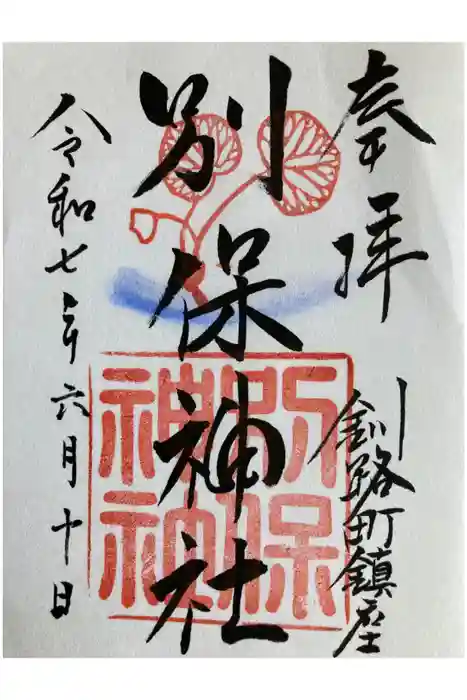 奉拝
釧路町鎮座
別保神社
令和七年六月十日
別保